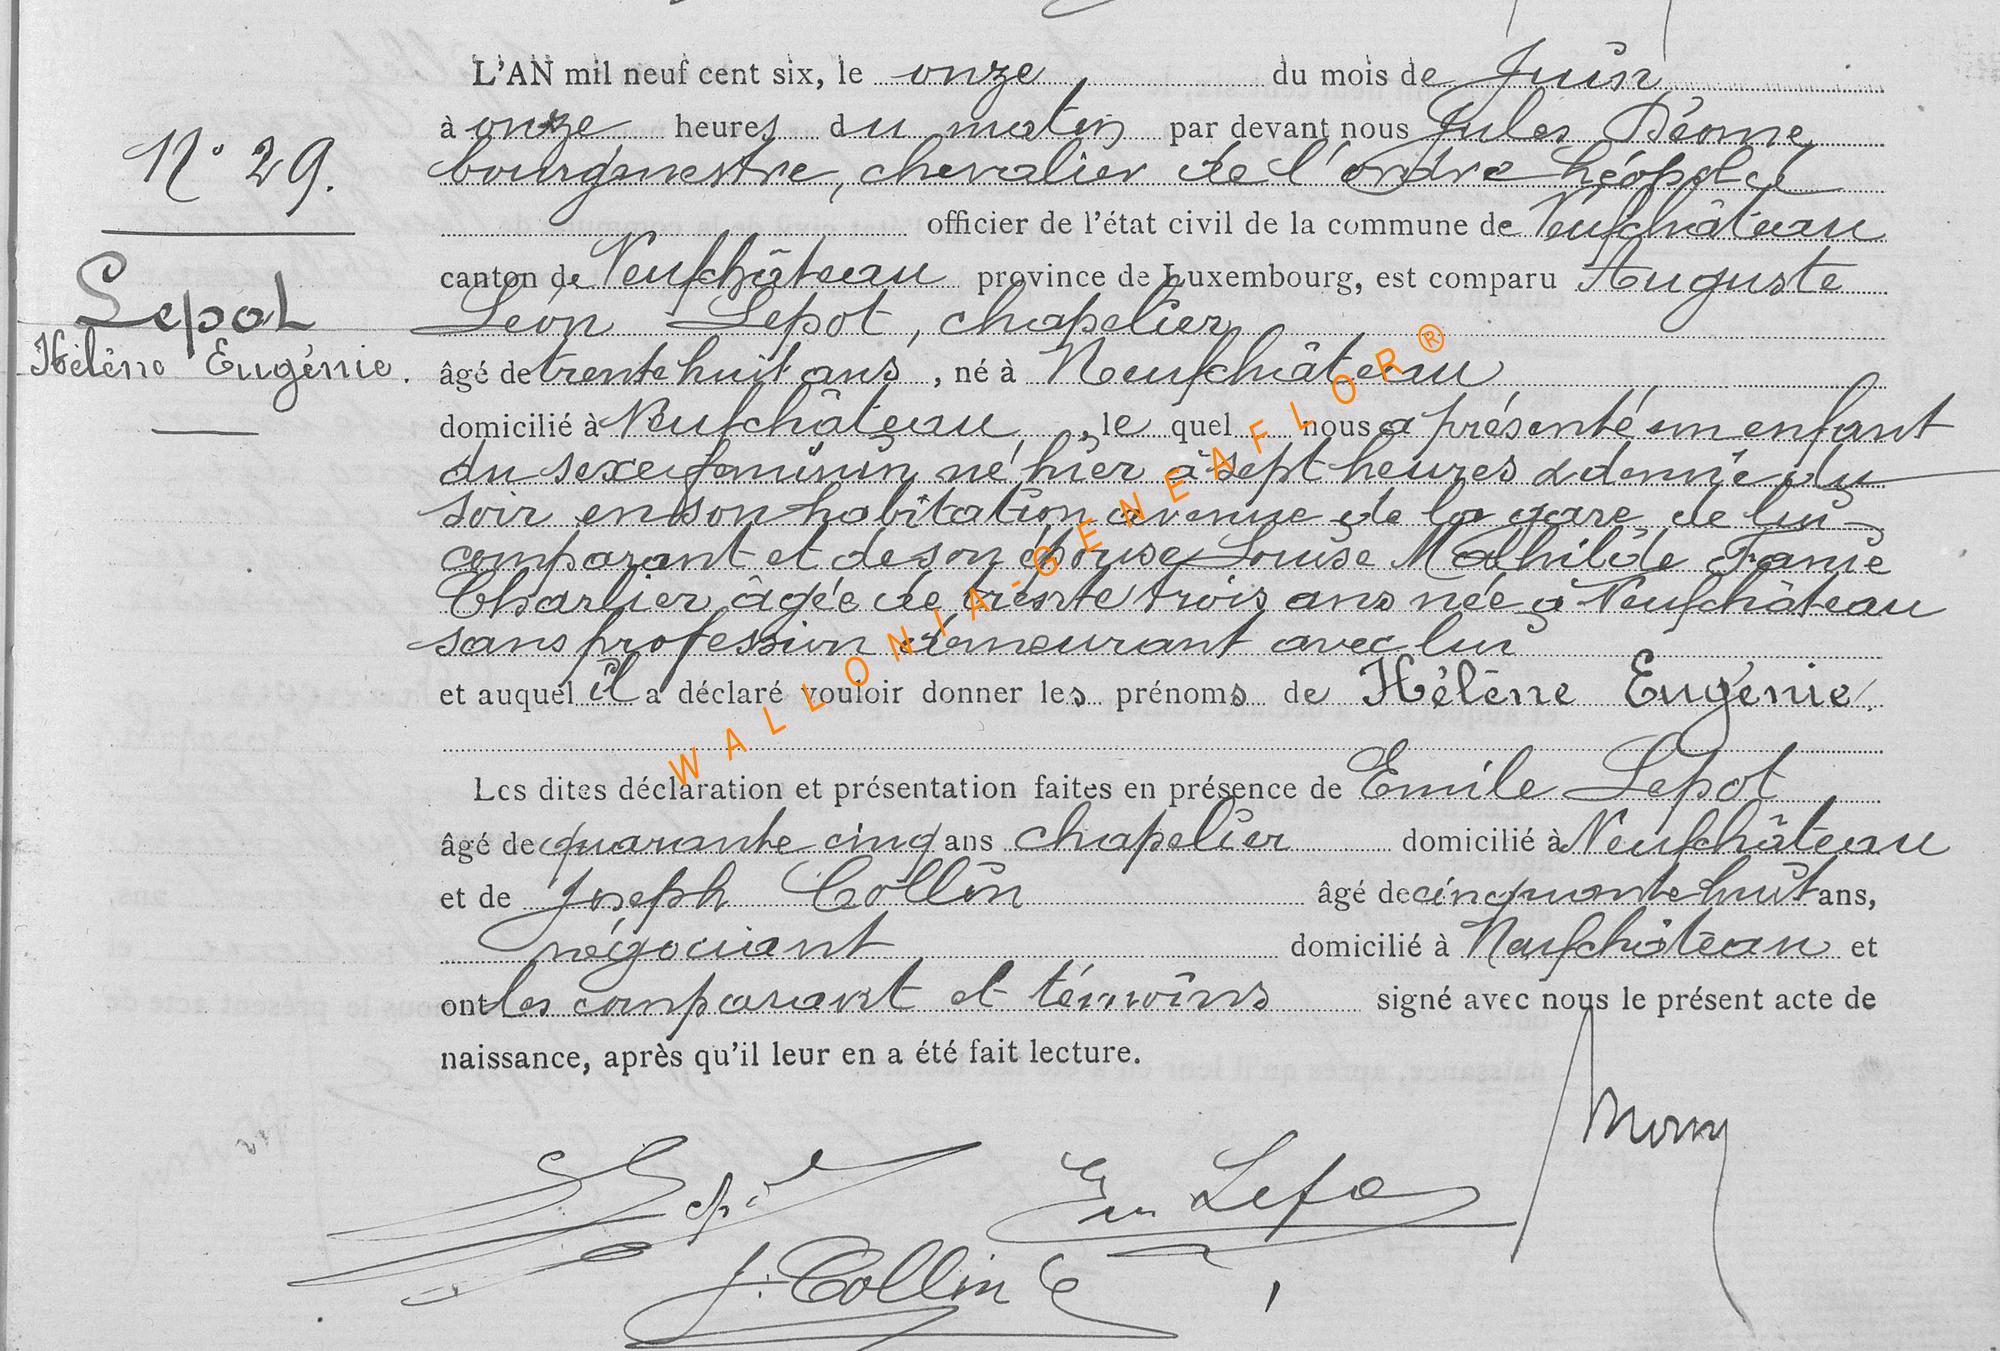 L'AN mil neuf cent six, le onze du mois de Juin
à onze heures du matin par devant nous Jules
N° 29.
bourgmestre, chevalier de l'ordre Léopold
officier de l'état civil de la commune de Neufchâteau
canton de Neufchâteau province de Luxembourg, est comparu Auguste
Lepot
Léon Lepot, chapelier
Hélène Eugénie.
âgé de trente huit ans, né à Neufchâteau
domicilié à Neufchâteau, le quel nous a présenté un enfant
du sexe feminin né hier à sept heures & demie du
soir en son habitation avenue de la gare de lui
comparant et de son épouse Louise Mathilde Fanie
Charlier âgée de trente trois ans née à Neufchâteau
sans profession demeurant avec lui
et auquel il a déclaré vouloir donner les prénoms de Hélène Eugénie.
Les dites déclaration et présentation faites en présence de Emile Lepot
âgé de quarante cinq ans chapelier domicilié à Neufchâteau
et de Joseph Collin âgé de cinquante huit ans,
négociant domicilié à Neufchâteau et
ont les comparant et témoins signé avec nous le présent acte de
naissance, après qu'il leur en a été fait lecture.
Em Lepo
J. Collin
WALLONIA-GENEAFLOR®